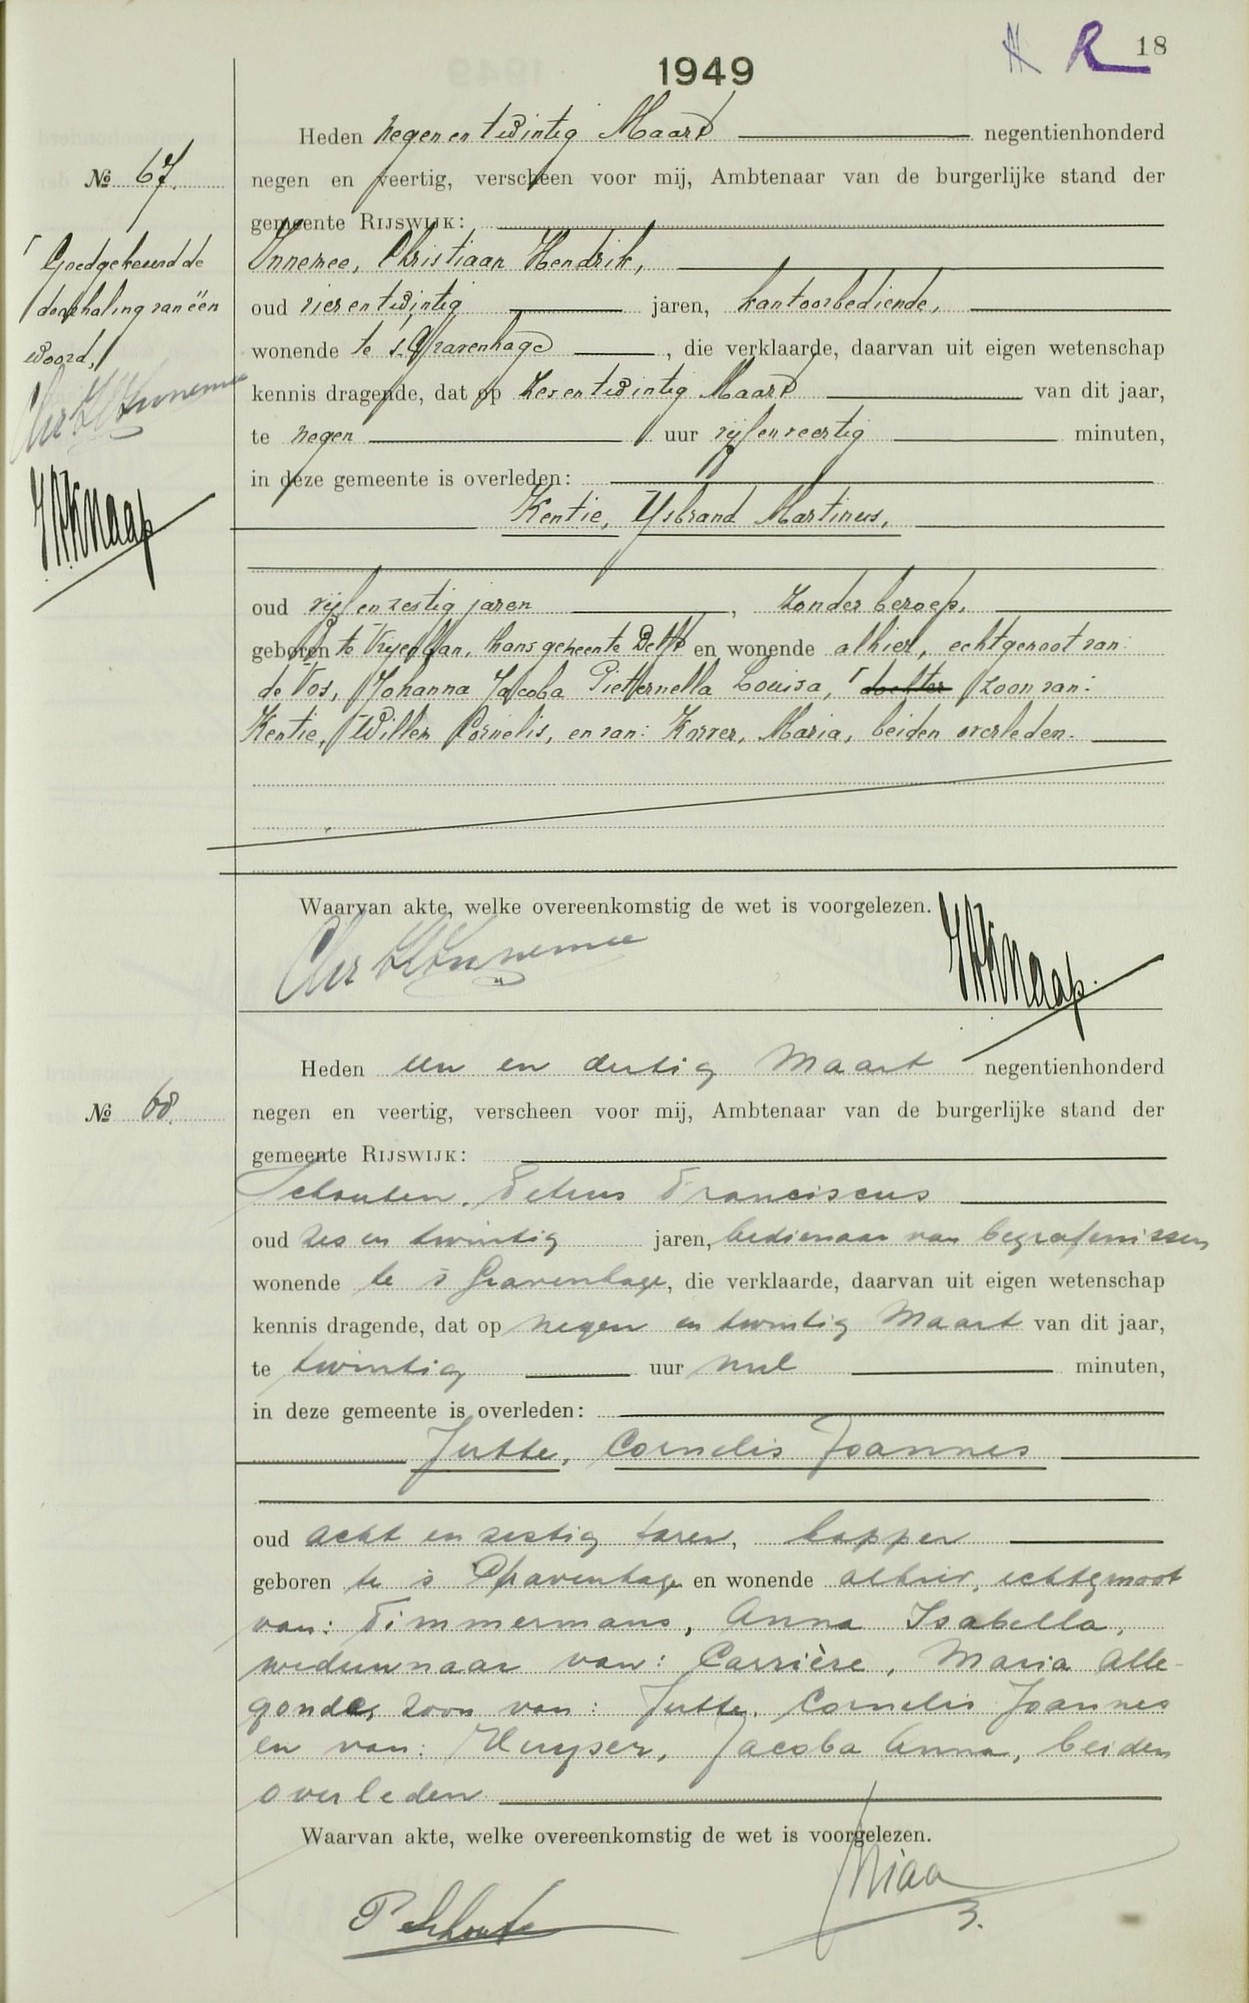 18
R
1949
Heden negen en twintig Maart negentienhonderd
№ 67.
negen en veertig, verscheen voor mij, Ambtenaar van de burgerlijke stand der
gemeente RIJSWIJK:
Innemee, Christiaan Hendrik,
oud vier en twintig jaren, kantoorbediende,
wonende te 's Gravenhage, die verklaarde, daarvan uit eigen wetenschap
kennis dragende, dat op zes en twintig Maart van dit jaar,
te negen uur vijf en veertig minuten,
in deze gemeente is overleden:
Kentie, IJsbrand Martinus,
oud vijf en zestig jaren, zonder beroep,
geboren te Vrijenban, thans gemeente Delft en wonende alhier, echtgenoot van:
de Vos, Johanna Jacoba Pieternella Louisa, dochter zoon van:
Kentie, Willem Cornelis, en van: Korver, Maria, beiden overleden.
Goedgekeurd de
doorhaling van één
woord,
Chr H Innemee
Knaap
Waarvan akte, welke overeenkomstig de wet is voorgelezen.
Chr H Innemee
Knaap.
Heden een en dertig Maart negentienhonderd
№ 68.
negen en veertig, verscheen voor mij, Ambtenaar van de burgerlijke stand der
gemeente RIJSWIJK:
Schouten, Petrus Franciscus
oud zes en twintig jaren, bedienaar van begrafenissen
wonende te 's Gravenhage, die verklaarde, daarvan uit eigen wetenschap
kennis dragende, dat op negen en twintig Maart van dit jaar,
te twintig uur nul minuten,
in deze gemeente is overleden:
Jutte, Cornelis Joannes
oud acht en zestig jaren, kapper
geboren te 's Gravenhage en wonende alhier, echtgenoot
van: Timmermans, Anna Isabella,
weduwnaar van: Carrière, Maria Alle-
gonda, zoon van: Jutte, Cornelis Joannes
en van: Huyser, Jacoba Anna, beiden
overleden
Waarvan akte, welke overeenkomstig de wet is voorgelezen.
P Schouten